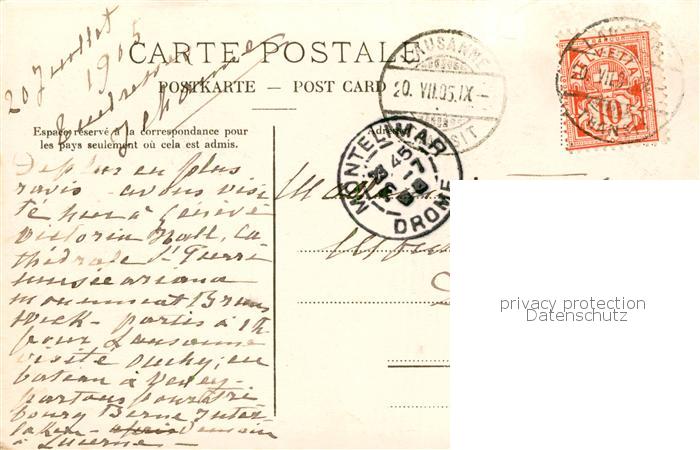 20 Juillet
1905
CARTE POSTALE
POSTKARTE — POST CARD
Espace réservé à la correspondance pour
les pays seulement où cela est admis.
Adresse
LAUSANNE
20. VII. 05. IX —
TRANSIT
MONTELIMAR
DROME
HELVETIA
10
De plus en plus
ravis - avons visi
té hier à Genève
Victoria Hall, Ca
thédrale St Pierre
musée ariana
monument Bruns
wick - partis à 1h
pour Lausanne
visité Ouchy, en
bateau à Vevey -
partons pour Fri
bourg Berne Inter
laken - demain
à Lucerne -
privacy protection
Datenschutz